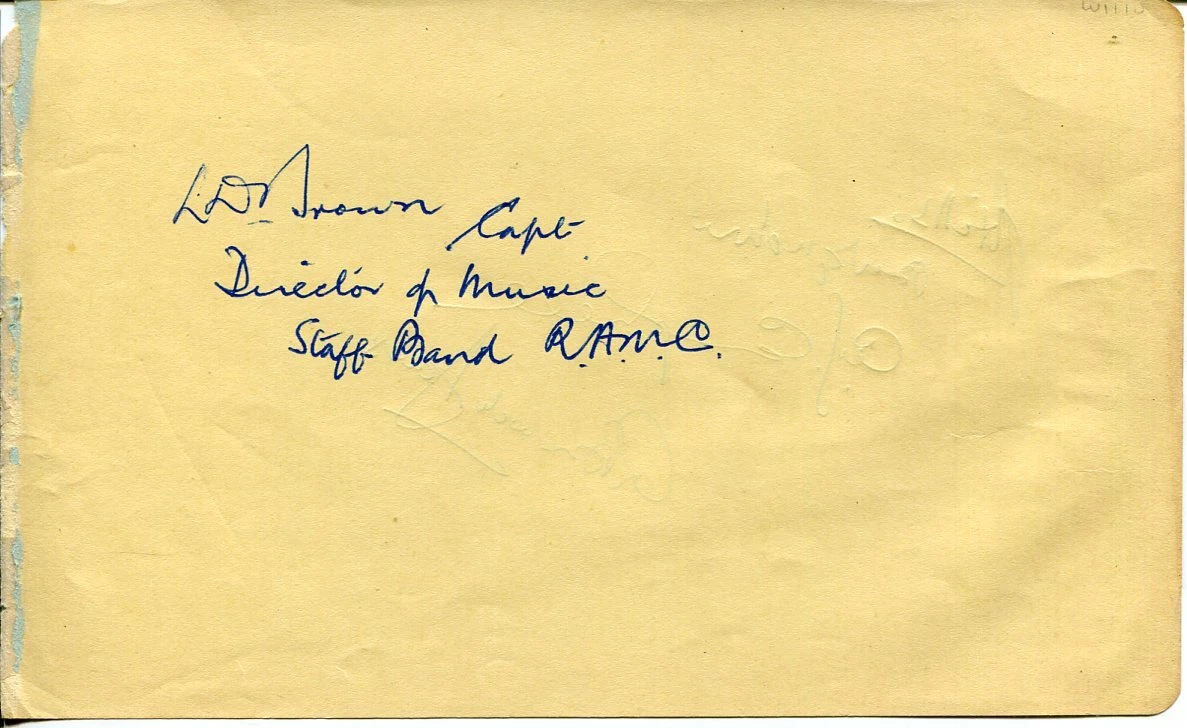 L.D. Brown Capt
Director of Music
Staff Band R.A.M.C.